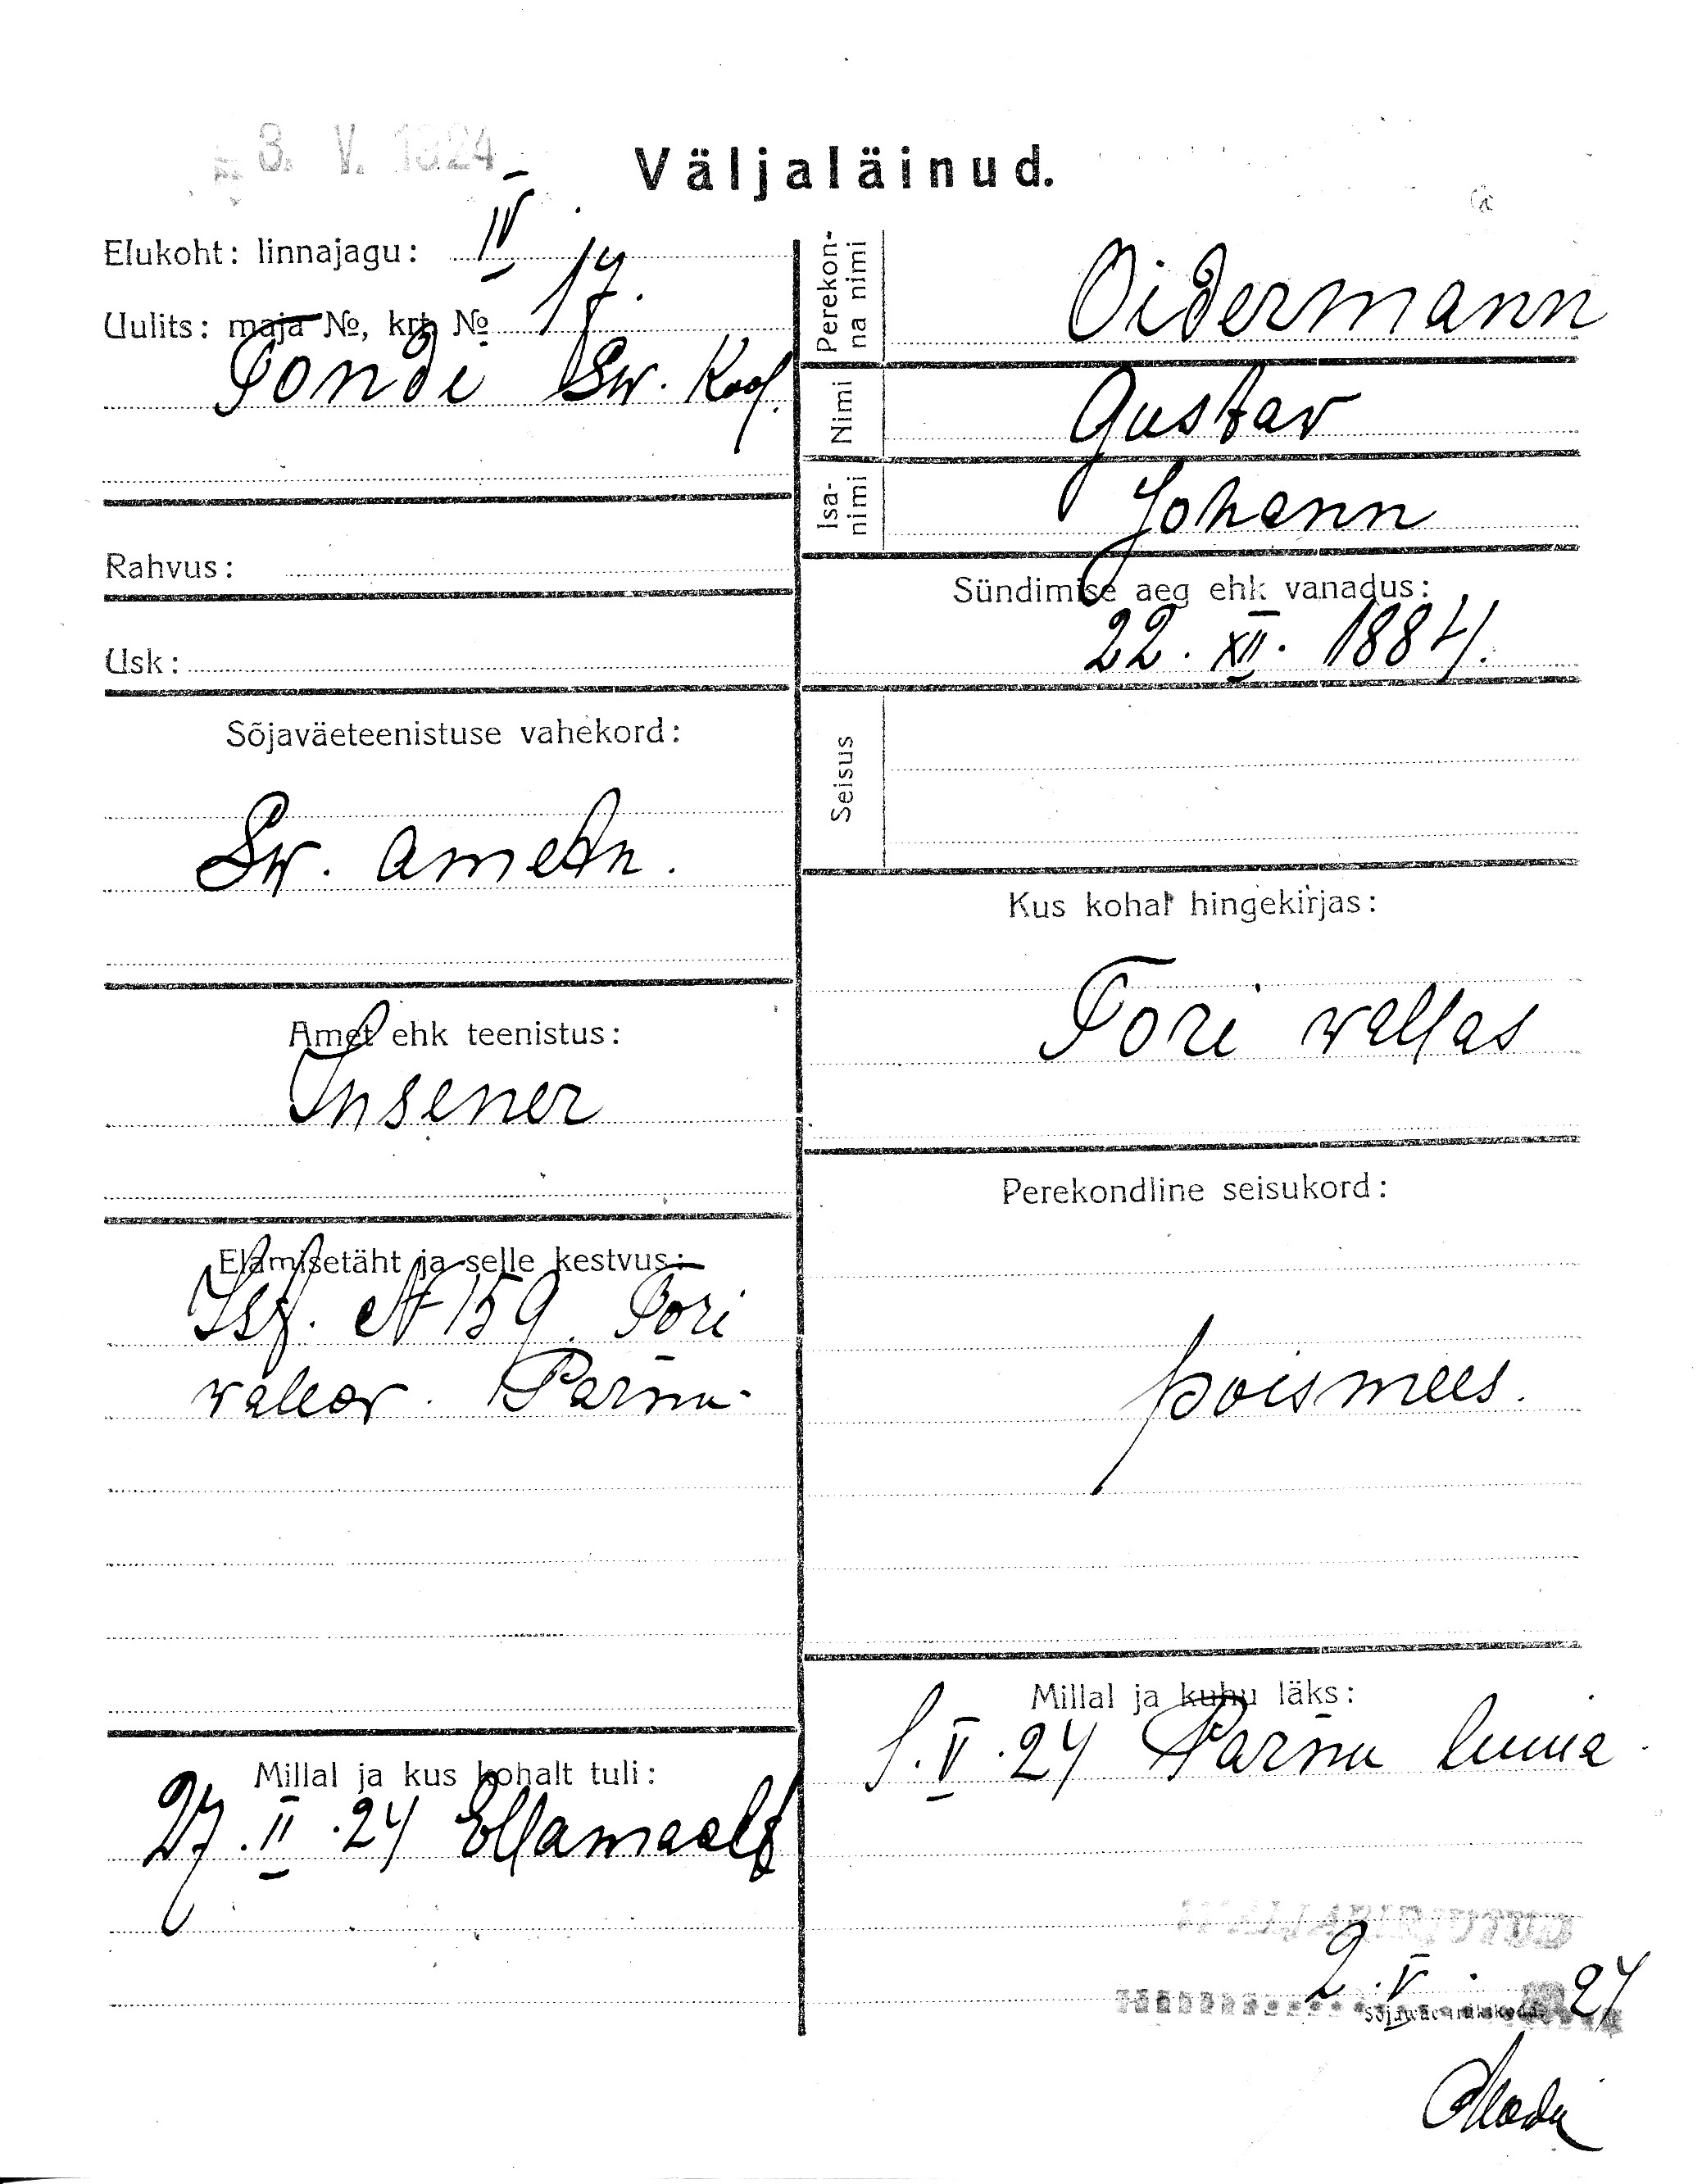 3. V. 1924
Väljaläinud.
Elukoht: linnajagu: IV
Uulits: maja №, krt. № 17.
Tondi Sw. Kool.
Rahvus:
Usk:
Sõjaväeteenistuse vahekord:
Sw. ametn.
Amet ehk teenistus:
Insener
Elamisetäht ja selle kestvus:
Isf. № 159. Tori
Pärnu
Millal ja kus kohalt tuli:
27. II. 24 Ellamaalt
Perekon-
na nimi
Oidermann
Nimi Gustav
Isa-
nimi
Johann
Sündimise aeg ehk vanadus:
22. XII. 1884.
Seisus
Kus kohal hingekirjas:
Tori wallas
Perekondline seisukord:
poismees.
Millal ja kuhu läks:
1. V. 24 Pärnu linna
2. V. 24